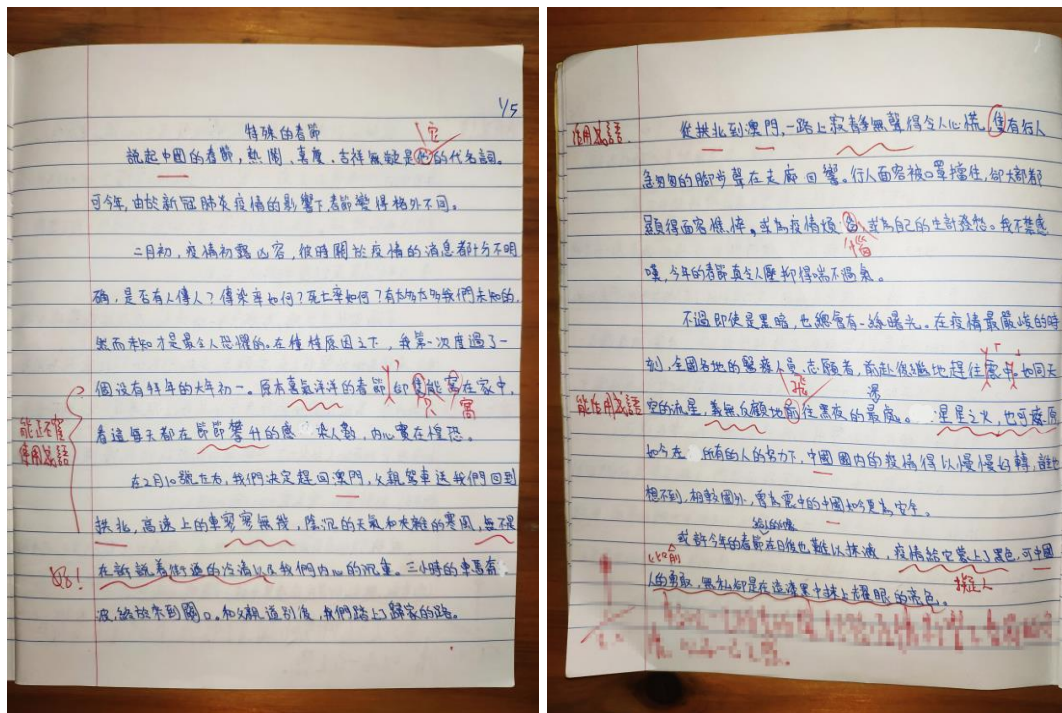 1/5
特殊的春節
它
說起中國的春節，熱鬧、喜慶、吉祥無疑是他的代名詞。
可今年，由於新冠肺炎疫情的影響下，春節變得格外不同。
二月初，疫情初露凶容，彼時關於疫情的消息都十分不明
確，是否有人傳人？傳染率如何？死亡率如何？有太多太多我們未知的，
然而未知才是最令人恐懼的。在種種原因之下，我第一次度過了一
個沒有拜年的大年初一。原本喜氣洋洋的春節，卻隻能窩在家中，
只
窩
看這每天都在節節攀升的感染人數，內心實在惶恐。
能適當
使用成語
在2月10號左右，我們決定趕回澳門，父親駕車送我們回到
拱北，高速上的車寥寥無幾，陰沉的天氣和的寒風，無不是
在訴說着街道的冷清以及我們內心的沉重。三小時的車馬奔
好！
波，終於來到關口。和父親道別後，我們踏上了歸家的路。
活用成語
從拱北到澳門，一路上寂靜無聲得令人心慌，隻有行人
急匆匆的腳步聲在走廊回響。行人面容被口罩擋住，卻大部都
顯得面容憔悴，或為疫情煩，或為自己的生計發愁。我不禁感
惱
嘆，今年的春節真令人壓抑得喘不過氣。
不過即使是黑暗，也總會有一絲曙光。在疫情最嚴峻的時
刻，全國各地的醫療人員、志願者，前赴後繼地趕往震中，如同天
飛
深
能活用成語
空的流星，義無反顧地前往黑夜的最處。星星之火，也可燎原
如今在所有的人的努力下，中國國內的疫情得以慢慢好轉，誰也
想不到，相較國外，曾為震中的中國如今更為安全。
或許今年的春節在日後也難以抹滅，疫情給它蒙上了黑色，可中國
人的勇敢、無私卻是在這漆黑中抹上耀眼的亮色。
擬人